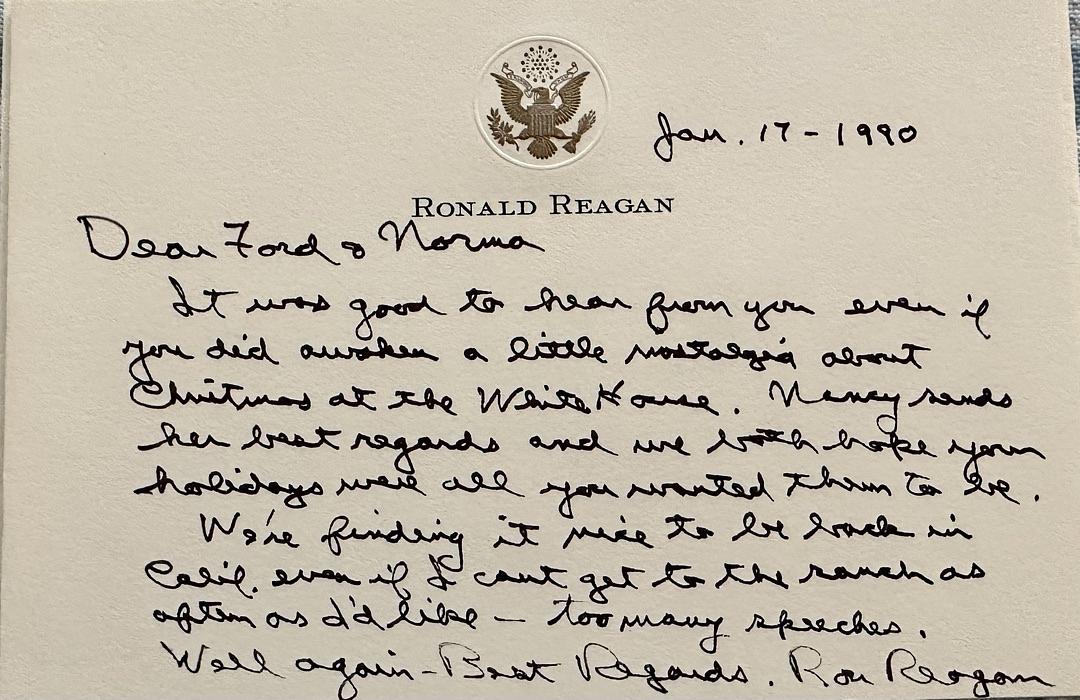 Jan. 17-1990
RONALD REAGAN
Dear Ford & Norma
It was good to hear from you even if
you did awaken a little nostalgia about
Christmas at the White House. Nancy sends
her best regards and we both hope your
holidays were all you wanted them to be.
We're finding it nice to be back in
Calif. even if I cant get to the ranch as
often as I'd like – too many speeches.
Well again – Best Regards. Ron Reagan